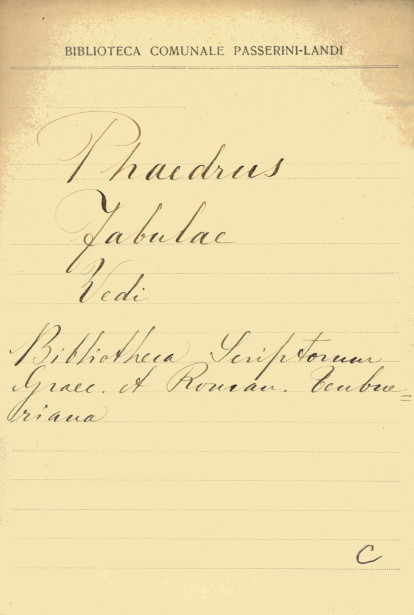 BIBLIOTECA COMUNALE PASSERINI-LANDI
Phaedrus
Fabulae
Vedi
Bibliotheca Scriptorum
Graec. et Roman. Teubne=
riana
C